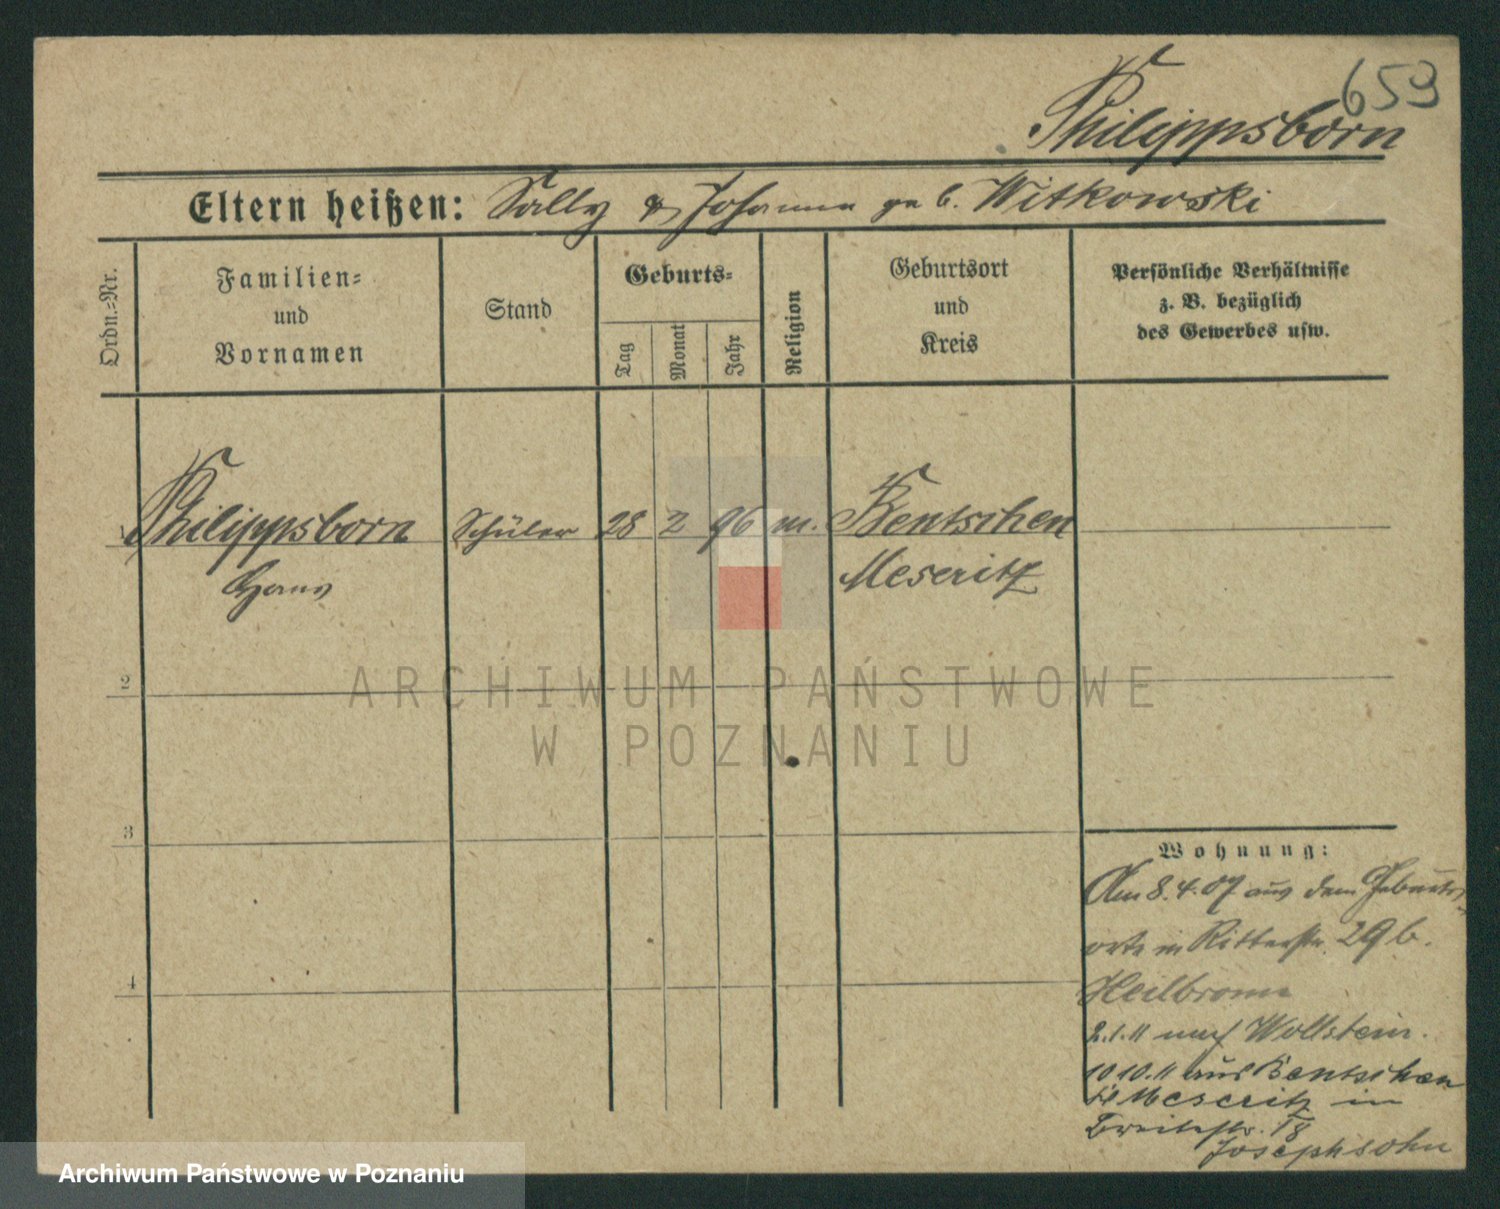 659
Philippsborn
Eltern heißen: Sally & Johanna geb. Witkowski
Ordn.-Nr.
Familien-
und
Vornamen
Stand
Geburts-
Tag
Monat
Jahr
Religion
Geburtsort
und
Kreis
Persönliche Verhältnisse
z. B. bezüglich
des Gewerbes usw.
1 Philippsborn Schüler 28 2 96 m. Bentschen
Hans Meseritz
ARCHIWUM PAŃSTWOWE
W POZNANIU
2
3
4
Wohnung:
Am 8.4.07 aus dem Geburts-
orte in Ritterstr. 29 b.
Heilbronn
2.1.11 nach Wollstein.
10 10.11 aus Bentschen
Meseritz in
Breitestr. 18
Josephsohn
Archiwum Państwowe w Poznaniu